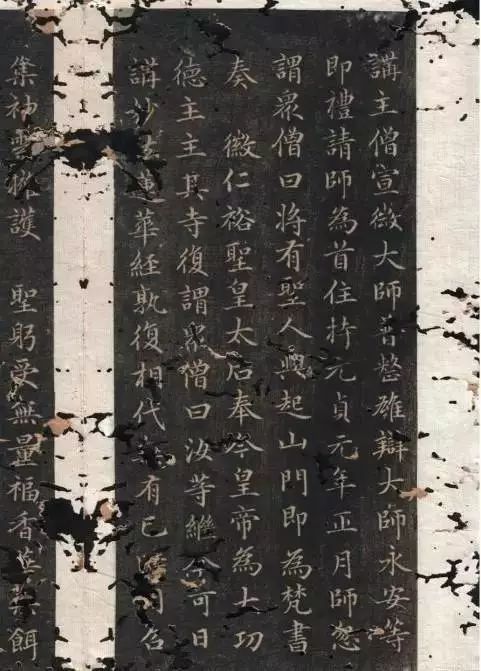 講主僧宣微大師普整雄辯大師永安等
即禮請師為首住持元貞元年正月師忽
謂眾僧曰將有聖人興起山門即為梵書
奏 徽仁裕聖皇太后奉今皇帝為大功
德主主其寺復謂眾僧曰汝等繼今可日
講妙法蓮華經孰復相代無有已時用召
集神靈擁護 聖躬受無量福香華果餌